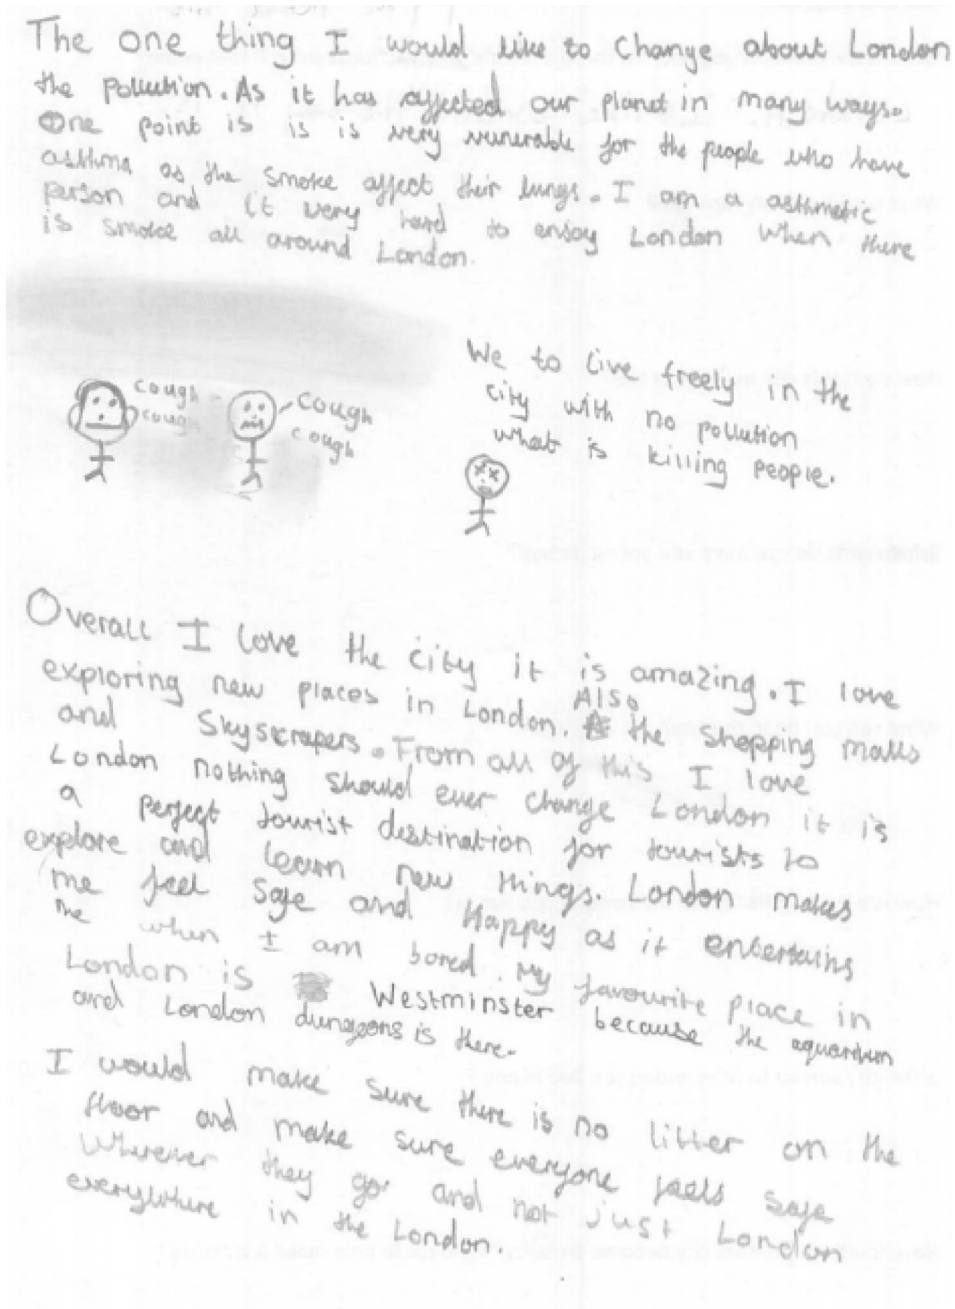 The one thing I would like to change about London
the pollution. As it has affected our planet in many ways.
One point is is is very vunerable for the people who have
asthma as the smoke affect their lungs. I am a asthmatic
person and it very hard to enjoy London when there
is smoke all around London.
cough
cough
cough
cough
We to live freely in the
city with no pollution
what is killing people.
Overall I love the city it is amazing. I love
exploring new places in London Also the shopping malls
and Skyscrapers. From all of this I love
London nothing should ever change London it is
a perfect tourist destination for tourists to
explore and learn new things. London makes
me feel safe and Happy as it entertains
me when I am bored. My favourite place in
London is Westminster because the aquarium
and London dungeons is there.
I would make sure there is no litter on the
floor and make sure everyone feels safe
wherever they go and not just London
everywhere in the London.